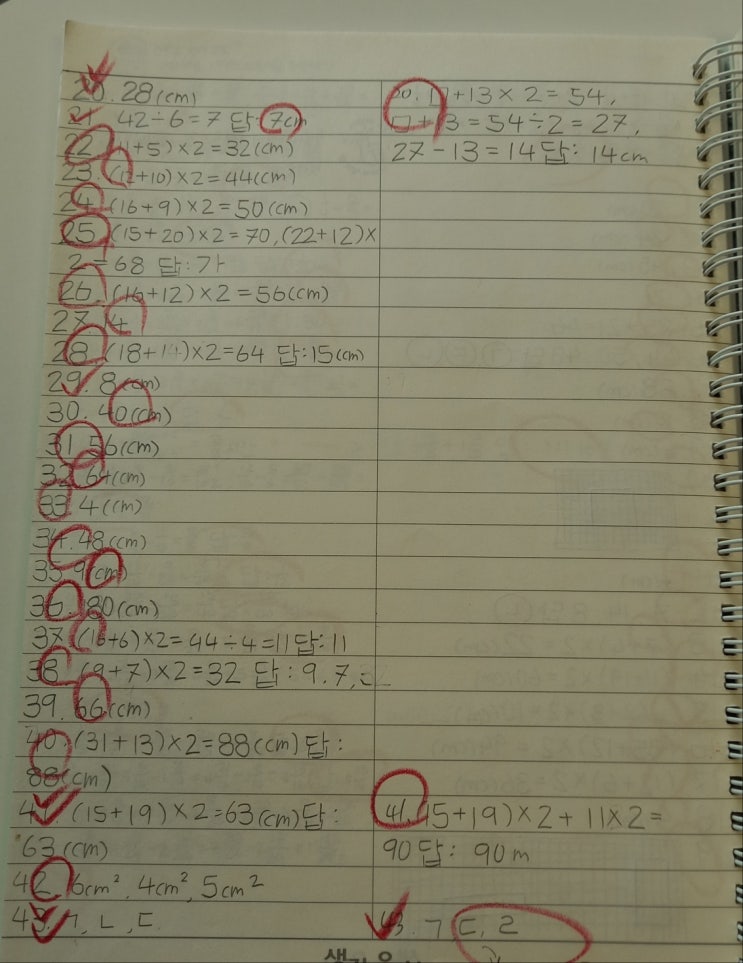 20. 28(cm)
21. 42÷6=7 답: 7cm
22. +5)×2=32(cm)
23. (12+10)×2=44(cm)
24. (16+9)×2=50(cm)
25. (15+20)×2=70, (22+12)×
2=68 답: 가
26. (16+12)×2=56(cm)
27. 4
28. (18+14)×2=64 답: 15(cm)
29. 8(cm)
30. 40(cm)
31. 56(cm)
32. 64(cm)
33. 4(cm)
34. 48(cm)
35. 9(cm)
36. 180(cm)
37. (16+6)×2=44÷4=11 답: 11
38. (9+7)×2=32 답: 9, 7,
39. 66(cm)
40. (31+13)×2=88(cm) 답:
88(cm)
41. (15+19)×2=63(cm) 답:
63(cm)
42. 6cm², 4cm², 5cm²
43. ㄱ, ㄴ, ㄷ
20. □+13×2=54,
□+13=54÷2=27,
27-13=14 답: 14cm
41. (15+19)×2+11×2=
90 답: 90m
43. ㄱ, ㄷ, ㄹ